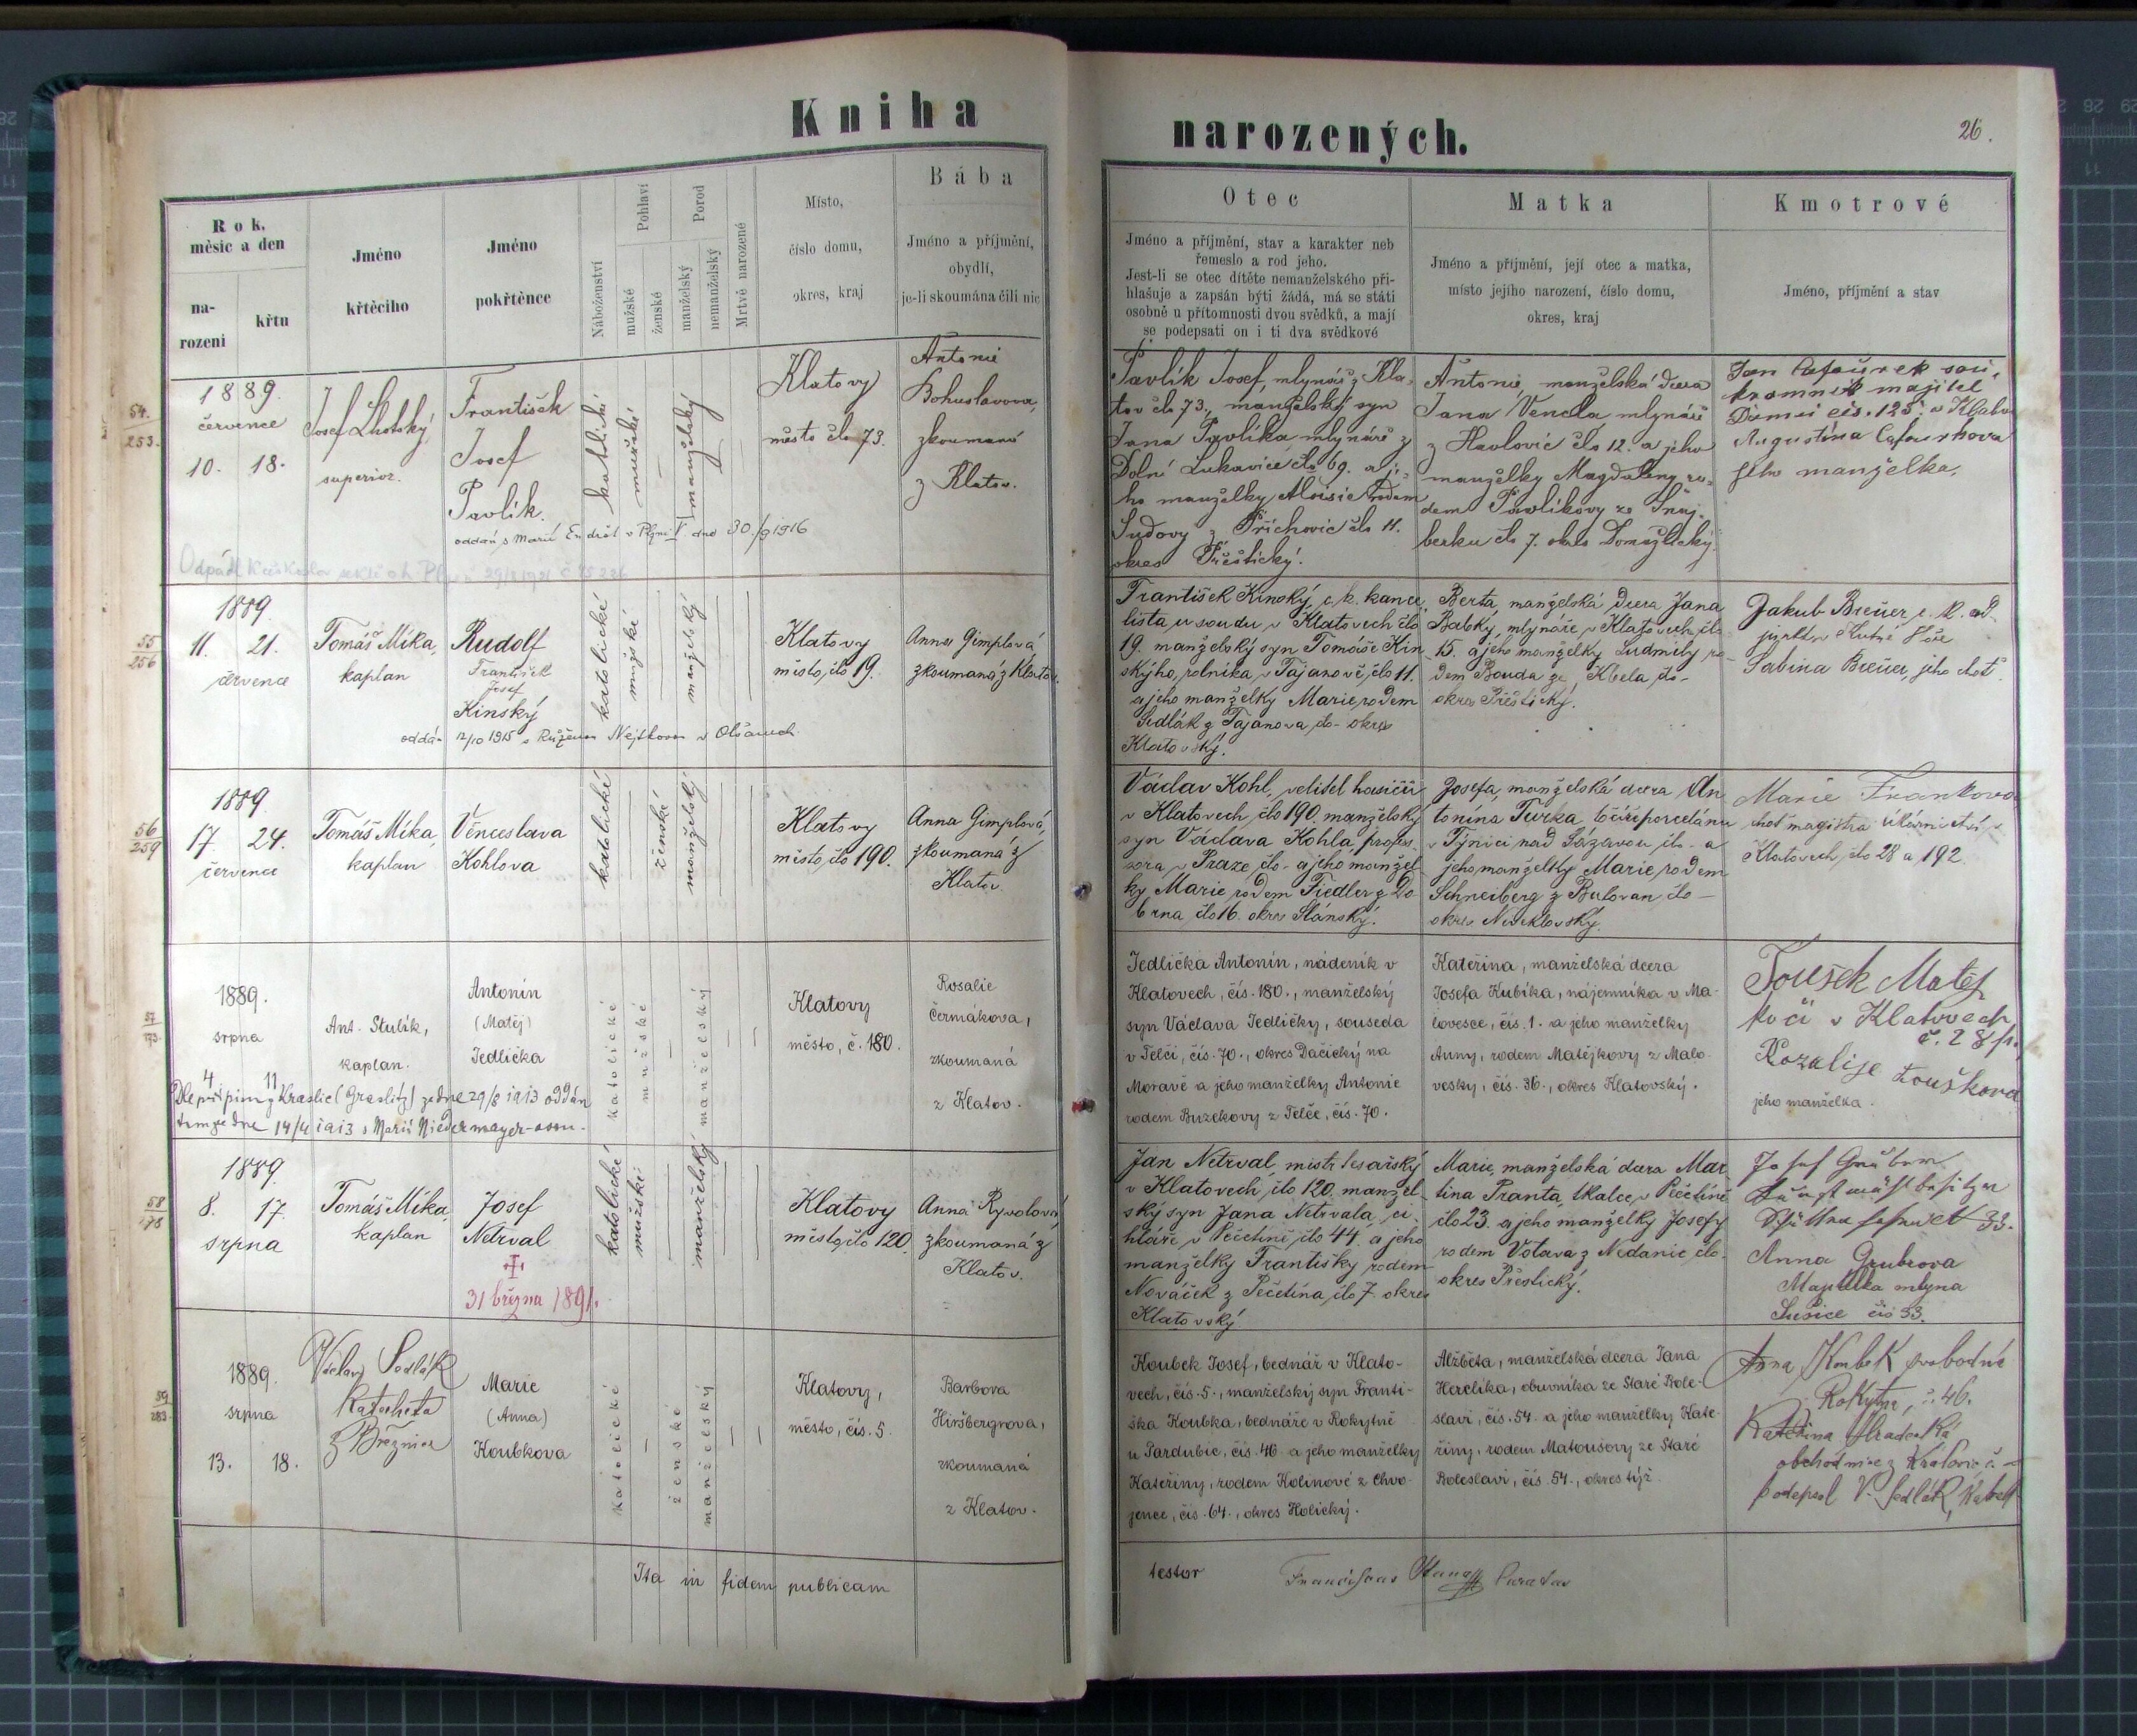 Kniha
narozených.
26.
Rok,
měsíc a den
na-
rozeni
křtu
Jméno
křtěcího
Jméno
pokřtěnce
Náboženství
Pohlaví
mužské
ženské
Porod
manželský
nemanželský
Mrtvě narozené
Místo,
číslo domu,
okres, kraj
Bába
Jméno a příjmění,
obydlí,
je-li skoumána čili nic
Otec
Jméno a příjmění, stav a karakter neb
řemeslo a rod jeho.
Jest-li se otec dítěte nemanželského při-
hlašuje a zapsán býti žádá, má se státi
osobně u přítomnosti dvou svědků, a mají
se podepsati on i ti dva svědkové
Matka
Jméno a příjmění, její otec a matka,
místo jejího narození, číslo domu,
okres, kraj
Kmotrové
Jméno, příjmění a stav
54.
253.
1889.
července
10. 18.
Josef Lhotský
superior.
František
Josef
Pavlík.
katolické
mužské
manželský
Klatovy
město člo 73.
Antonie
Bohuslavova,
zkoumaná
z Klatov.
oddán s Marií v Plzni dne 30./9 1916
Pavlík Josef, mlynář z Kla-
tov člo 73., manželský syn
Jana Pavlíka mlynáře z
Dolní Lukavice člo 69. a je-
ho manželky Aloisie rodem
Sudovy z Příchovic člo 11.
okres Přeštický.
Antonie, manželská dcera
Jana Vencla, mlynáře
z Havlovic člo 12. a jeho
manželky Magdaleny ro-
dem Pavlíkovy ze Šnaj-
berku člo 7. okres Domažlický.
Jan Cafourek sou-
kromník majitel
Domu čís. 125. v Klatov
Augustina Cafourkova
jeho manželka.
55
256
1889.
11. 21.
července
Tomáš Míka,
kaplan
Rudolf
František
Josef
Kinský
katolické
mužské
manželský
Klatovy
město, člo 19.
Anna Gimplová
zkoumaná z Klatov.
oddán 12/10 1915 s Růženou Nejtkovou v Olšanech
František Kinský, c. k. kance-
lista u soudu v Klatovech člo
19. manželský syn Tomáše Kin-
ského, rolníka v Tajanově, člo 11.
a jeho manželky Marie, rodem
Sedlák z Tajanova, člo - okres
Klatovský.
Berta, manželská dcera Jana
Babky, mlynáře v Klatovech člo
15. a jeho manželky Ludmily ro-
dem Bouda ze Kbela, člo-
okres Přeštický.
Jakub Breüer c. k. ad-
junkt v Kutné Hoře
Sabina Breüer, jeho choť.
56
259
1889.
17. 24.
července
Tomáš Míka,
kaplan
Věnceslava
Kohlova
katolické
ženské
manželský
Klatovy
město, člo 190.
Anna Gimplová,
zkoumaná z
Klatov.
Václav Kohl, velitel hasičů
v Klatovech člo 190. manželský
syn Václava Kohla, profes-
sora v Praze člo - a jeho manžel-
ky Marie, rodem Fiedler z Do-
brna, člo 16. okres Slánský.
Josefa, manželská dcera An-
tonína Turka, točíře porcelánu
v Týnici nad Sázavou člo - a
jeho manželky Marie, rodem
Schneiberg z Bulovan člo -
okres Neveklovský.
Marie Frankova
choť magistra lékárnictví v
Klatovech, člo 28 a 192.
57
1889.
srpna
4 11
Ant. Stulík,
kaplan.
Antonín
(Matěj)
Jedlička
katolické
mužské
manželský
Klatovy
město, č. 180.
Rosalie
Čermákova,
zkoumaná
z Klatov.
Dle přípisu z Kraslic (Graslitz) ze dne 29/8 1913 oddán
tamže dne 14/4 1913 s Marií Niedermayer-osou.
Jedlička Antonín, nádeník v
Klatovech, čís. 180., manželský
syn Václava Jedličky, souseda
v Telči, čís. 70., okres Dačický na
Moravě a jeho manželky Antonie
rodem Buzekovy z Telče, čís. 70.
Kateřina, manželská dcera
Josefa Kubíka, nájemníka v Ma-
lovesce, čís. 1. a jeho manželky
Anny, rodem Matějkovy z Malo-
vesky, čís. 36., okres Klatovský.
Toušek Matěj
kočí v Klatovech
č. 28 p.
Rozalije toušková
jeho manželka.
58
278
1889.
8. 17.
srpna
Tomáš Míka,
kaplan
Josef
Netrval
31 března 1891.
katolické
mužské
manželský
Klatovy
město, člo 120.
Anna Rywolová
zkoumaná z
Klatov.
Jan Netrval, mistr tesařský
v Klatovech, člo 120. manžel-
ský syn Jana Netrvala, ci-
hláře v Pečetíně, člo 44. a jeho
manželky Františky rodem
Nováček z Pečetína, člo 7. okres
Klatovský.
Marie, manželská dcera Mar-
tina Pranta, tkalce v Pečetíně
člo 23. a jeho manželky Josefy
rodem Votava z Nedanic člo.
okres Přeštický.
Josef Gruber
Kunstmühlbesitzer
33.
Anna Grubrova
Majitelka mlyna
Sušice čís 33.
59
283.
1889.
srpna
13. 18.
Václav Sedlák
Katecheta
z Březnice
Marie
(Anna)
Koubkova
katolické
ženské
manželský
Klatovy,
město, čís. 5.
Barbora
Hiršbergrova,
zkoumaná
z Klatov.
Koubek Josef, bednář v Klato-
vech, čís. 5., manželský syn Franti-
ška Koubka, bednáře v Rokytně
u Pardubic, čís. 46. a jeho manželky
Kateřiny, rodem Kolinové z Chvo-
jence, čís. 64., okres Holický.
Alžběta, manželská dcera Jana
Herclíka, obuvníka ze Staré Bole-
slavi, čís. 54. a jeho manželky Kate-
řiny, rodem Matoušovy ze Staré
Boleslavi, čís. 54., okres týž.
Anna Koubek svobodná
Rokytno, č. 46.
Kateřina Hradecká
obchodnice z Královic č. -
podepsal V. Sedlák, katech.
Ita in fidem publicam
testor